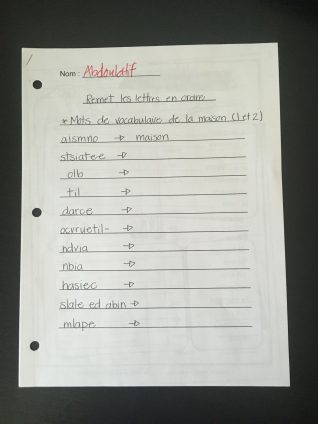 Nom : Abdoulatif
Remet les lettres en ordre
* Mots de vocabulaire de la maison (1 et 2)
aismno → maison
stsiatee →
olb →
til →
darce →
ocvruetil- →
ndvia →
nbia →
hasiec →
slale ed abin →
mlape →